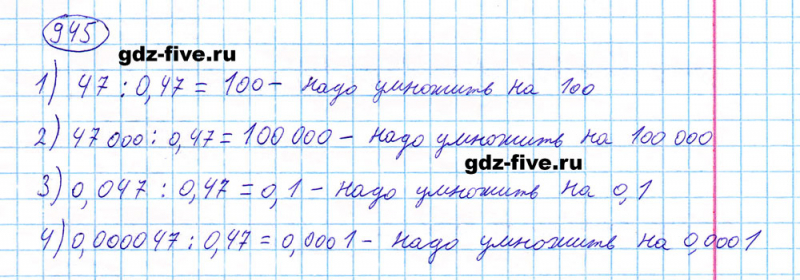 945
gdz-five.ru
1) 47 : 0,47 = 100 - надо умножить на 100
2) 47 000 : 0,47 = 100 000 - надо умножить на 100 000
gdz-five.ru
3) 0,047 : 0,47 = 0,1 - надо умножить на 0,1
4) 0,000047 : 0,47 = 0,0001 - надо умножить на 0,0001